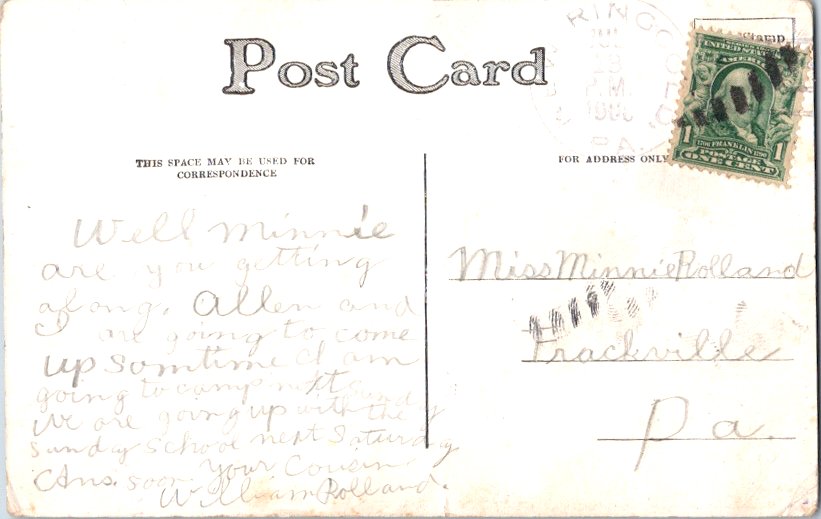 Post Card
Stamp
RINGGO
P.M.
PA.
UNITED STATES OF AMERICA
1 1706 FRANKLIN 1790 1
POSTAGE
ONE CENT
THIS SPACE MAY BE USED FOR
CORRESPONDENCE
FOR ADDRESS ONLY
Well Minnie
are you getting
along, Allen and
I are going to come
up somtime I am
going to camp
We are going up with the
Sunday School next Saturday
Ans. soon. Your Cousin
William Rolland.
Miss Minnie Rolland
Trackville
Pa.